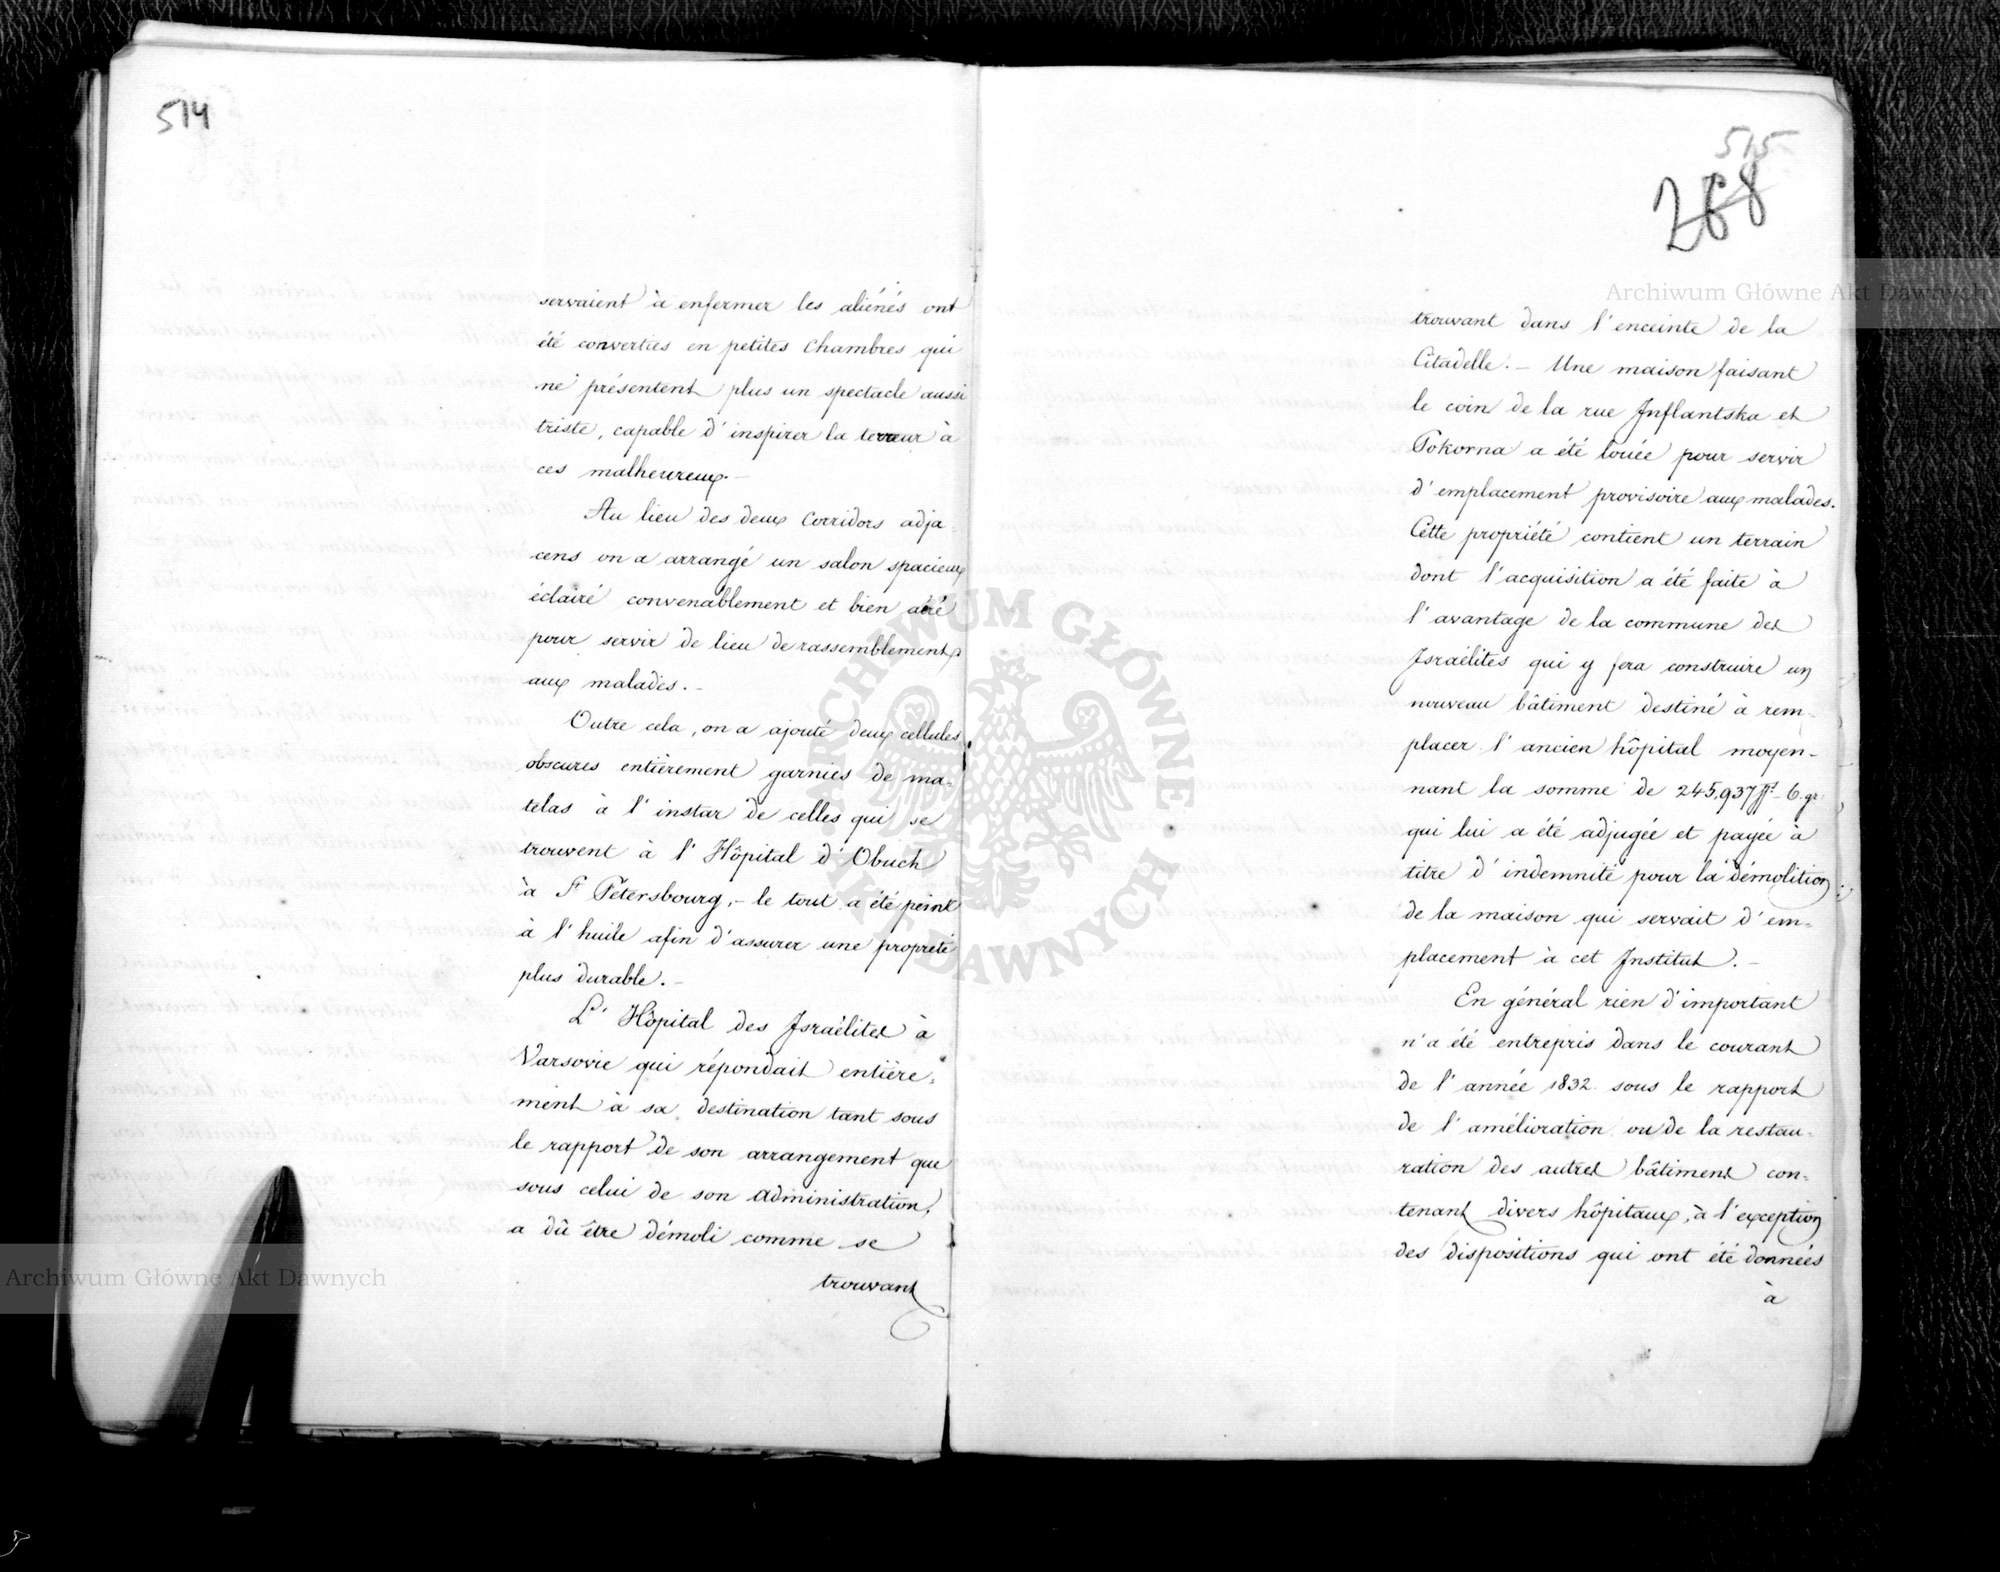 514
servaient à enfermer les aliénés ont
été converties en petites Chambres qui
ne présentent plus un spectacle aussi
triste, capable d'inspirer la terreur à
ces malheureux. —
Au lieu des deux Corridors adja-
cens on a arrangé un salon spacieux
éclairé convenablement et bien aéré
pour servir de lieu de rassemblement
aux malades. —
Outre cela, on a ajouté deux cellules
obscures entièrement garnies de ma-
telas à l'instar de celles qui se
trouvent à l'Hôpital d'Obuch
à St Pétersbourg, — le tout a été peint
à l'huile afin d'assurer une propreté
plus durable. —
L'Hôpital des Israélites à
Varsovie qui répondait entière-
ment à sa destination tant sous
le rapport de son arrangement que
sous celui de son administration,
a dû être démoli comme se
trouvant
515
268
trouvant dans l'enceinte de la
Citadelle. — Une maison faisant
le coin de la rue Inflantska et
Pokorna a été louée pour servir
d'emplacement provisoire aux malades.
Cette propriété contient un terrain
dont l'acquisition a été faite à
l'avantage de la commune des
Israélites qui y fera construire un
nouveau bâtiment destiné à rem-
placer l'ancien hôpital moyen-
nant la somme de 245,937 6. gr.
qui lui a été adjugée et payée à
titre d'indemnité pour la démolition
de la maison qui servait d'em-
placement à cet Institut. —
En général rien d'important
n'a été entrepris dans le courant
de l'année 1832 sous le rapport
de l'amélioration ou de la restau-
ration des autres bâtimens con-
tenant divers hôpitaux, à l'exception
des dispositions qui ont été données
à
Archiwum Główne Akt Dawnych
Archiwum Główne Akt Dawnych
ARCHIWUM GŁÓWNE AKT DAWNYCH